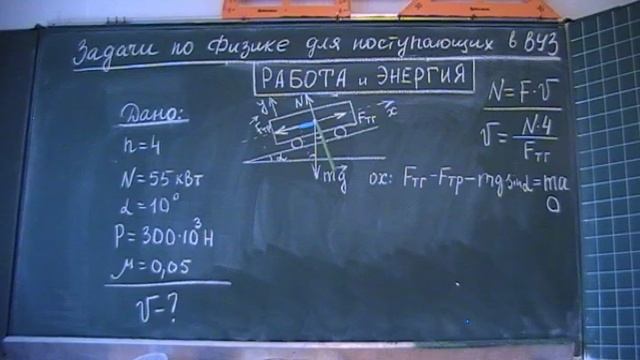 Задачи по физике для поступающих в ВУЗ
РАБОТА и ЭНЕРГИЯ
Дано:
n=4
N=55 кВт
α=10°
P=300·10³ Н
μ=0,05
V-?
y
N
x
Fтр
Fтг
α
mg
N=F·V
V=N·4/Fтг
ox: Fтг-Fтр-mg sinα=ma
0